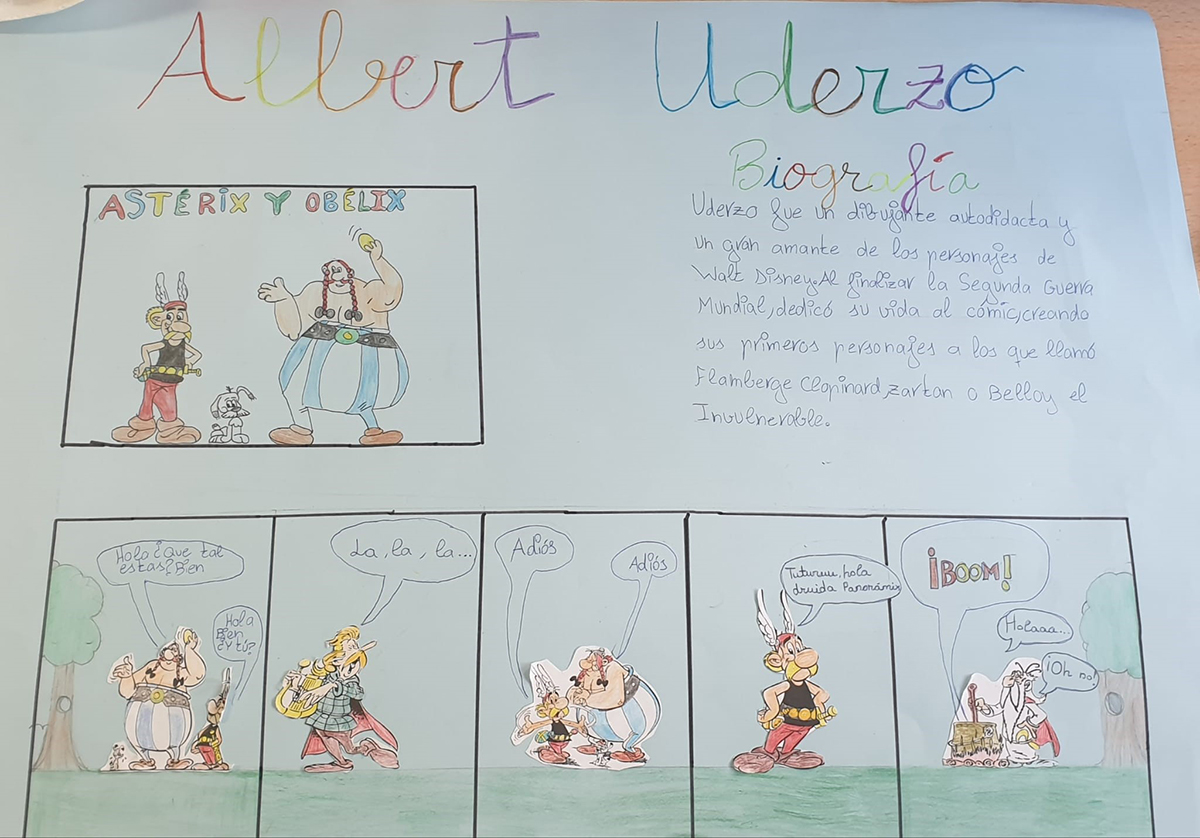 Albert Uderzo
Biografía
ASTÉRIX Y OBÉLIX
Uderzo fue un dibujante autodidacta y
un gran amante de los personajes de
Walt Disney. Al findizar la Segunda Guerra
Mundial, dedicó su vida al cómic, creando
sus primeros personajes a los que llamó
Flamberge Clopinard, zartan o Belloy el
Invulnerable.
Hola ¿que tal
estas? Bien
Hola
Bien
¿Y tú?
La, la, la...
Adiós
Adiós
Tuturuu, hola
druida Panorámix
¡BOOM!
Holaaa...
¡Oh no!